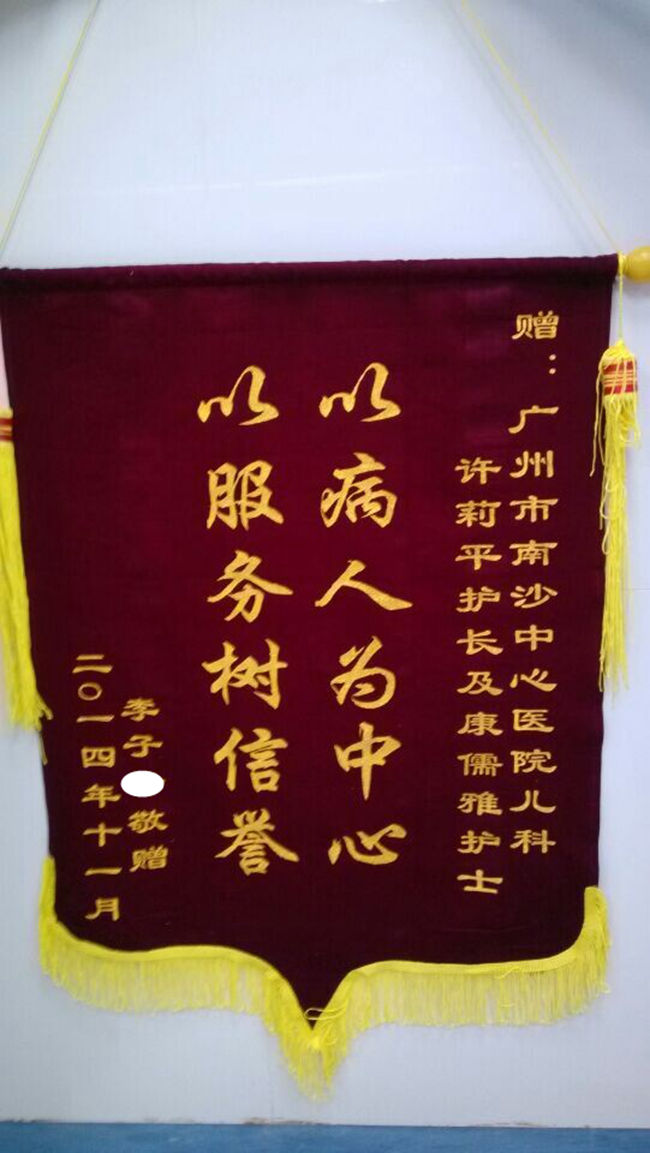 赠：广州市南沙中心医院儿科
许莉平护长及康儒雅护士
以病人为中心
以服务树信誉
李子 敬赠
二〇一四年十一月